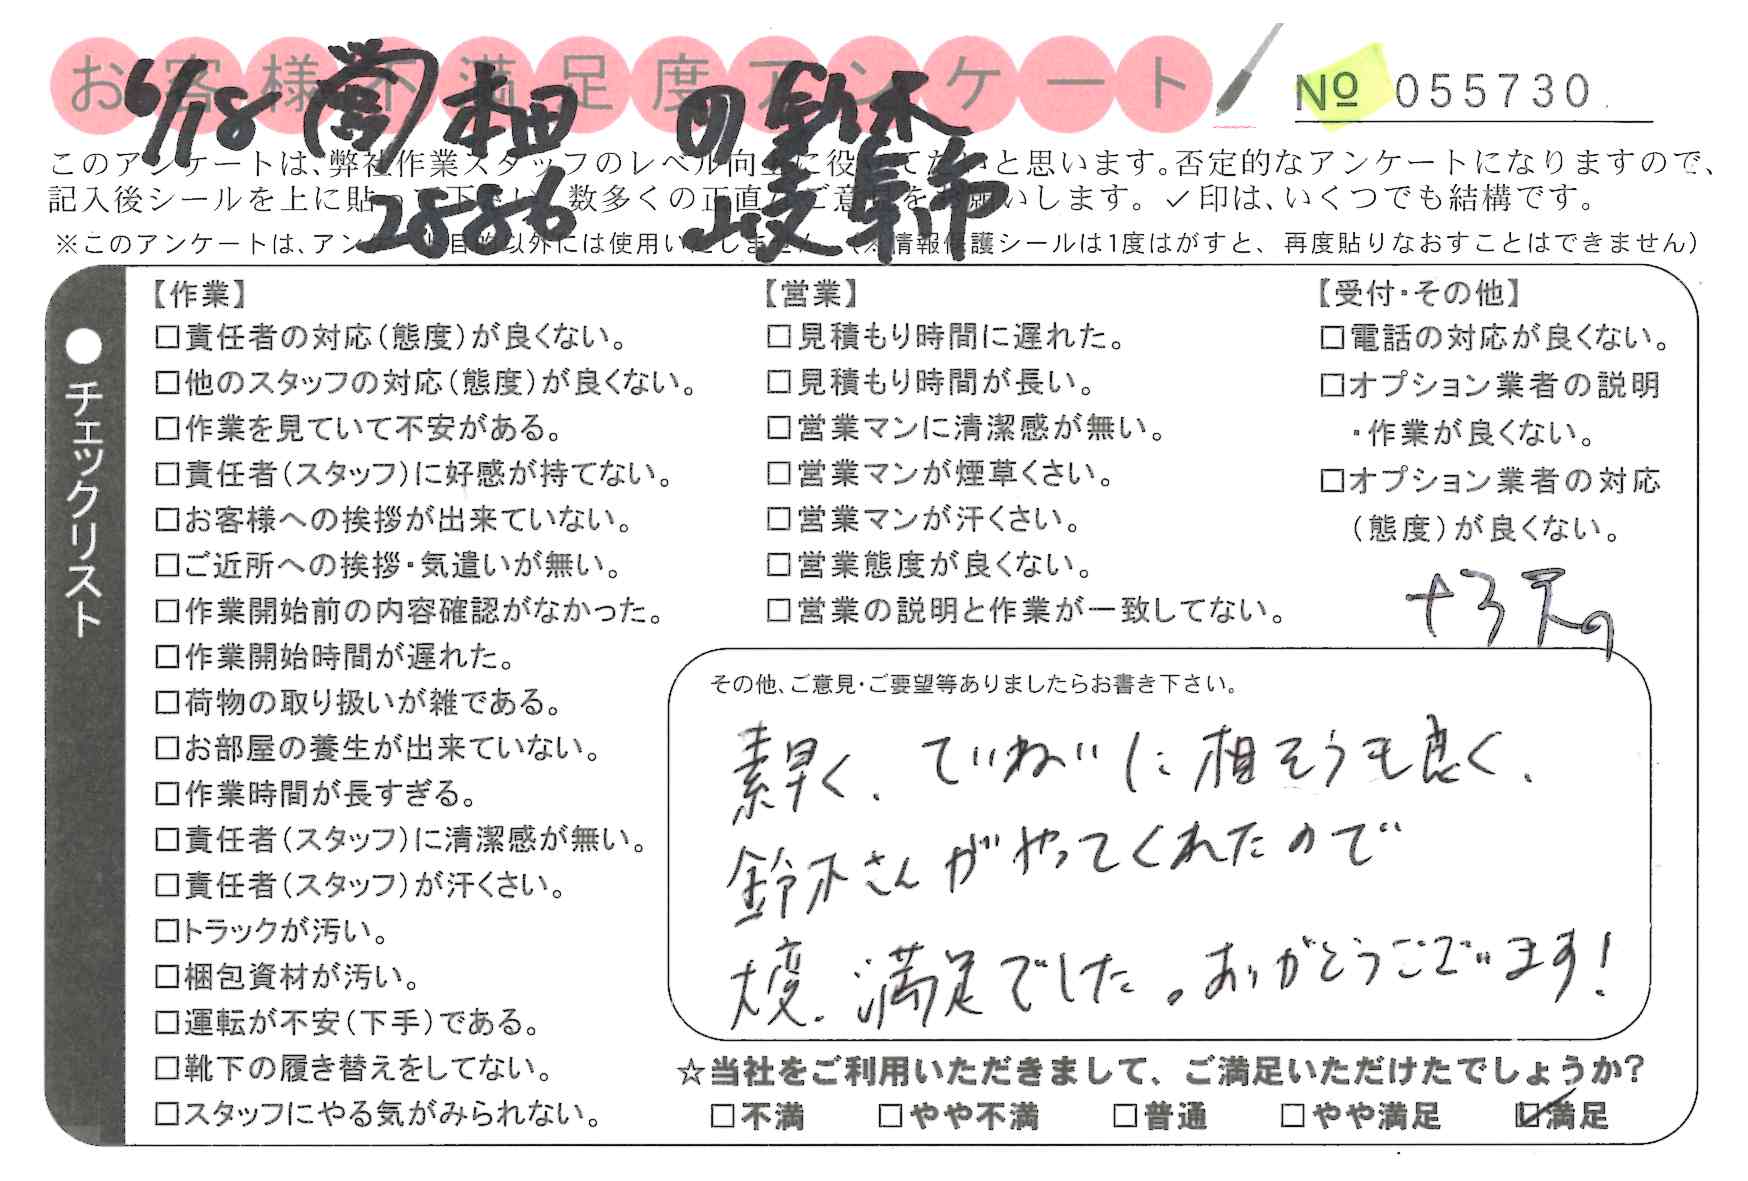 お客様不満足度アンケート
№ 055730
6/18 (営) 本田 の 鈴木
28886 岐阜市
このアンケートは、弊社作業スタッフのレベル向上に役立てたいと思います。否定的なアンケートになりますので、
記入後シールを上に貼って下さい。数多くの正直なご意見をお願いします。✓印は、いくつでも結構です。
※このアンケートは、アンケート目的以外には使用いたしません。(※情報保護シールは1度はがすと、再度貼りなおすことはできません)
●チェックリスト
【作業】
□責任者の対応(態度)が良くない。
□他のスタッフの対応(態度)が良くない。
□作業を見ていて不安がある。
□責任者(スタッフ)に好感が持てない。
□お客様への挨拶が出来ていない。
□ご近所への挨拶・気遣いが無い。
□作業開始前の内容確認がなかった。
□作業開始時間が遅れた。
□荷物の取り扱いが雑である。
□お部屋の養生が出来ていない。
□作業時間が長すぎる。
□責任者(スタッフ)に清潔感が無い。
□責任者(スタッフ)が汗くさい。
□トラックが汚い。
□梱包資材が汚い。
□運転が不安(下手)である。
□靴下の履き替えをしてない。
□スタッフにやる気がみられない。
【営業】
□見積もり時間に遅れた。
□見積もり時間が長い。
□営業マンに清潔感が無い。
□営業マンが煙草くさい。
□営業マンが汗くさい。
□営業態度が良くない。
□営業の説明と作業が一致してない。
【受付・その他】
□電話の対応が良くない。
□オプション業者の説明
・作業が良くない。
□オプション業者の対応
(態度)が良くない。
その他、ご意見・ご要望等ありましたらお書き下さい。
素早く、ていねいに相そうも良く、
鈴木さんがやってくれたので
大変、満足でした。ありがとうございます!
☆当社をご利用いただきまして、ご満足いただけたでしょうか?
□不満 □やや不満 □普通 □やや満足 ☑満足